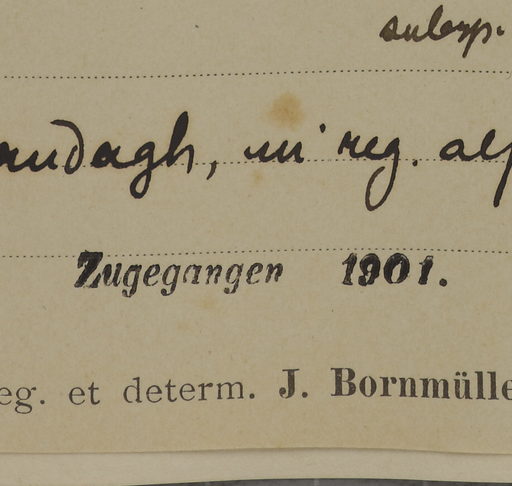 subsp.
audagh, in reg. alp
Zugegangen 1901.
eg. et determ. J. Bornmülle